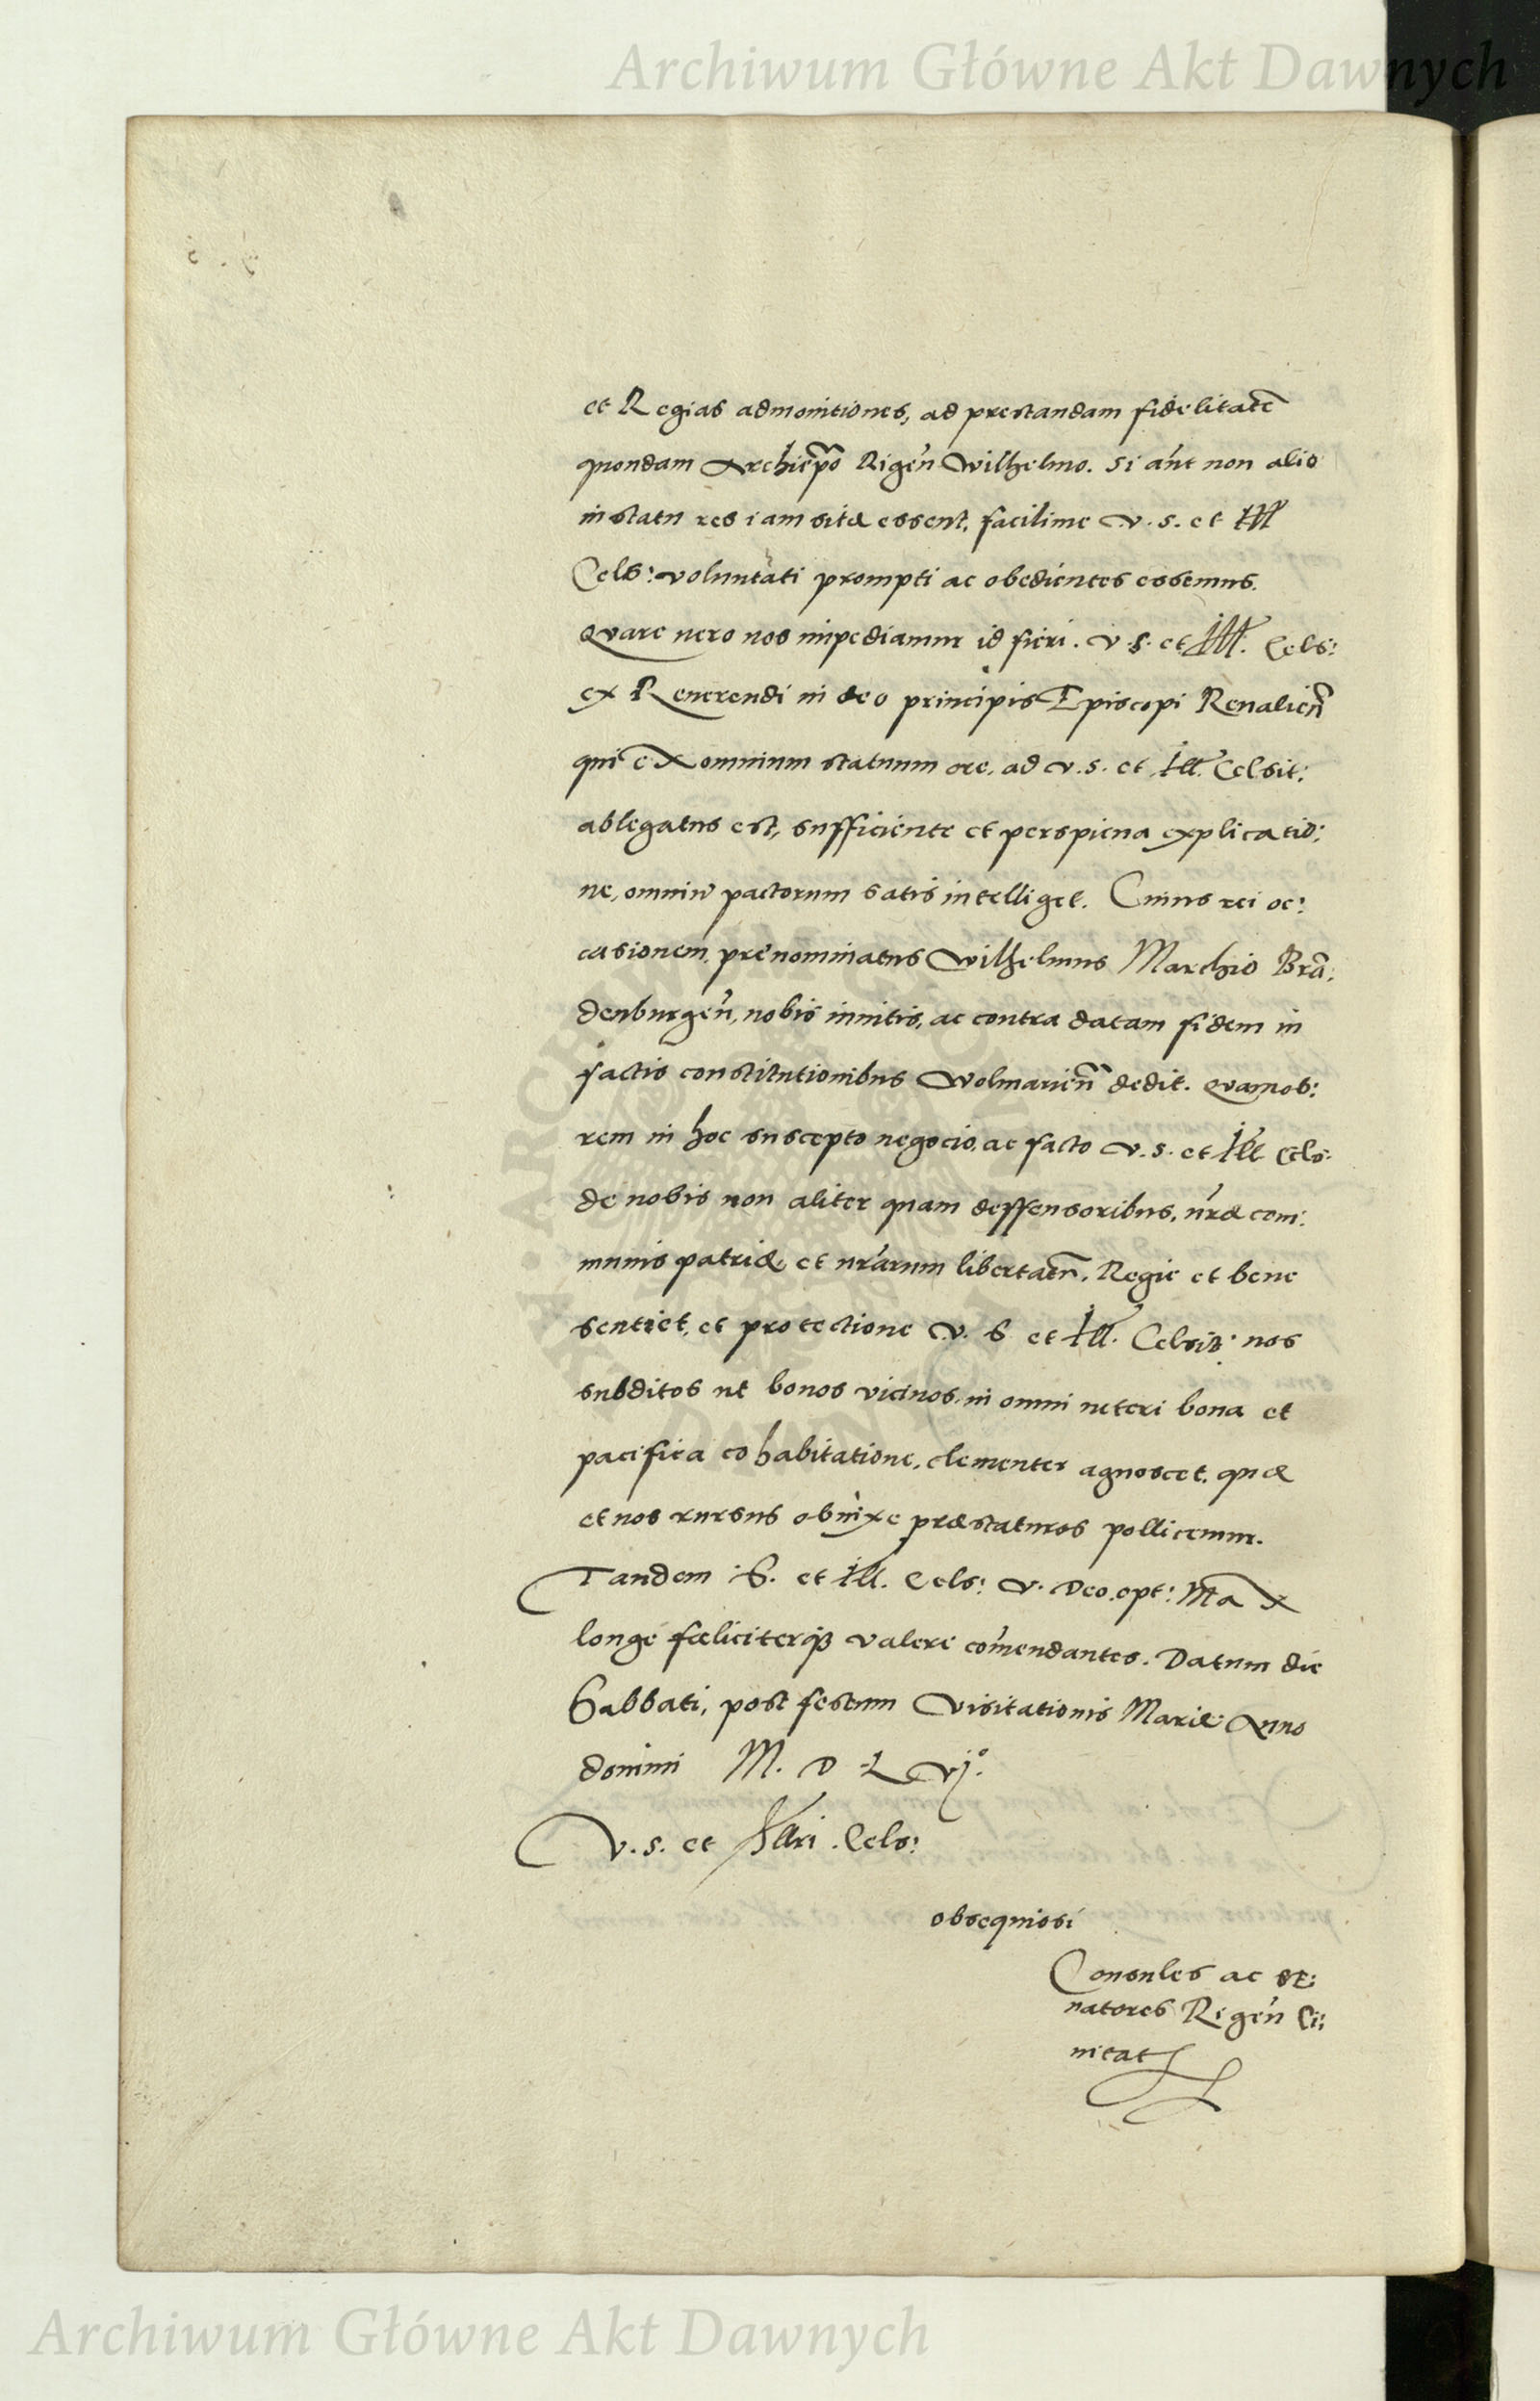 Archiwum Główne Akt Dawnych
et Regias admonitiones, ad prestandam fidelitatē
quondam Archiep̄o Rigen̄ Wilhelmo. Si aūt non alio
in statu res iam sitæ essent, facilime V. S. et Ill
Cels: voluntati prompti ac obedientes essemus.
Quare uero nos impediamur id fieri. V. S. et Ill. Cels:
ex Reuerendi in deo principis Episcopi Reualien̄
qui ex omnium statuum ore, ad V. S. et Ill. Celsit:
ablegatus est, sufficiente et perspicua explicatio:
ne, omniū pactorum satis intelliget. Cuius rei oc:
casionem, prenominatus Wilhelmus Marchio Brā:
denburgen̄, nobis inuitis, ac contra datam fidem in
factis constitutionibus Wolmarien̄ dedit. Quamob:
rem in hoc suscepto negocio, ac facto V. S. et Ill Cels:
de nobis non aliter quam deffensoribus, nr̄æ com:
munis patriæ, et nr̄arum libertatū, Regie et bene
sentiet, et protectione V. S et Ill. Celsit: nos
subditos ut bonos vicinos, in omni ueteri bona et
pacifica cohabitatione, clementer agnoscet, quæ
et nos rursus obnixe præstaturos pollicemur.
Tandem S. et Ill. Cels: V. Deo opt: Max
longe fæliciterq₃ valere com̄endantes. Datum die
Sabbati, post festum Visitationis Mariæ Anno
domini M. D L vj°.
V. S. et Illri. Cels:
obsequiosi
Consules ac se:
natores Rigen̄ Ci:
uitat
Archiwum Główne Akt Dawnych